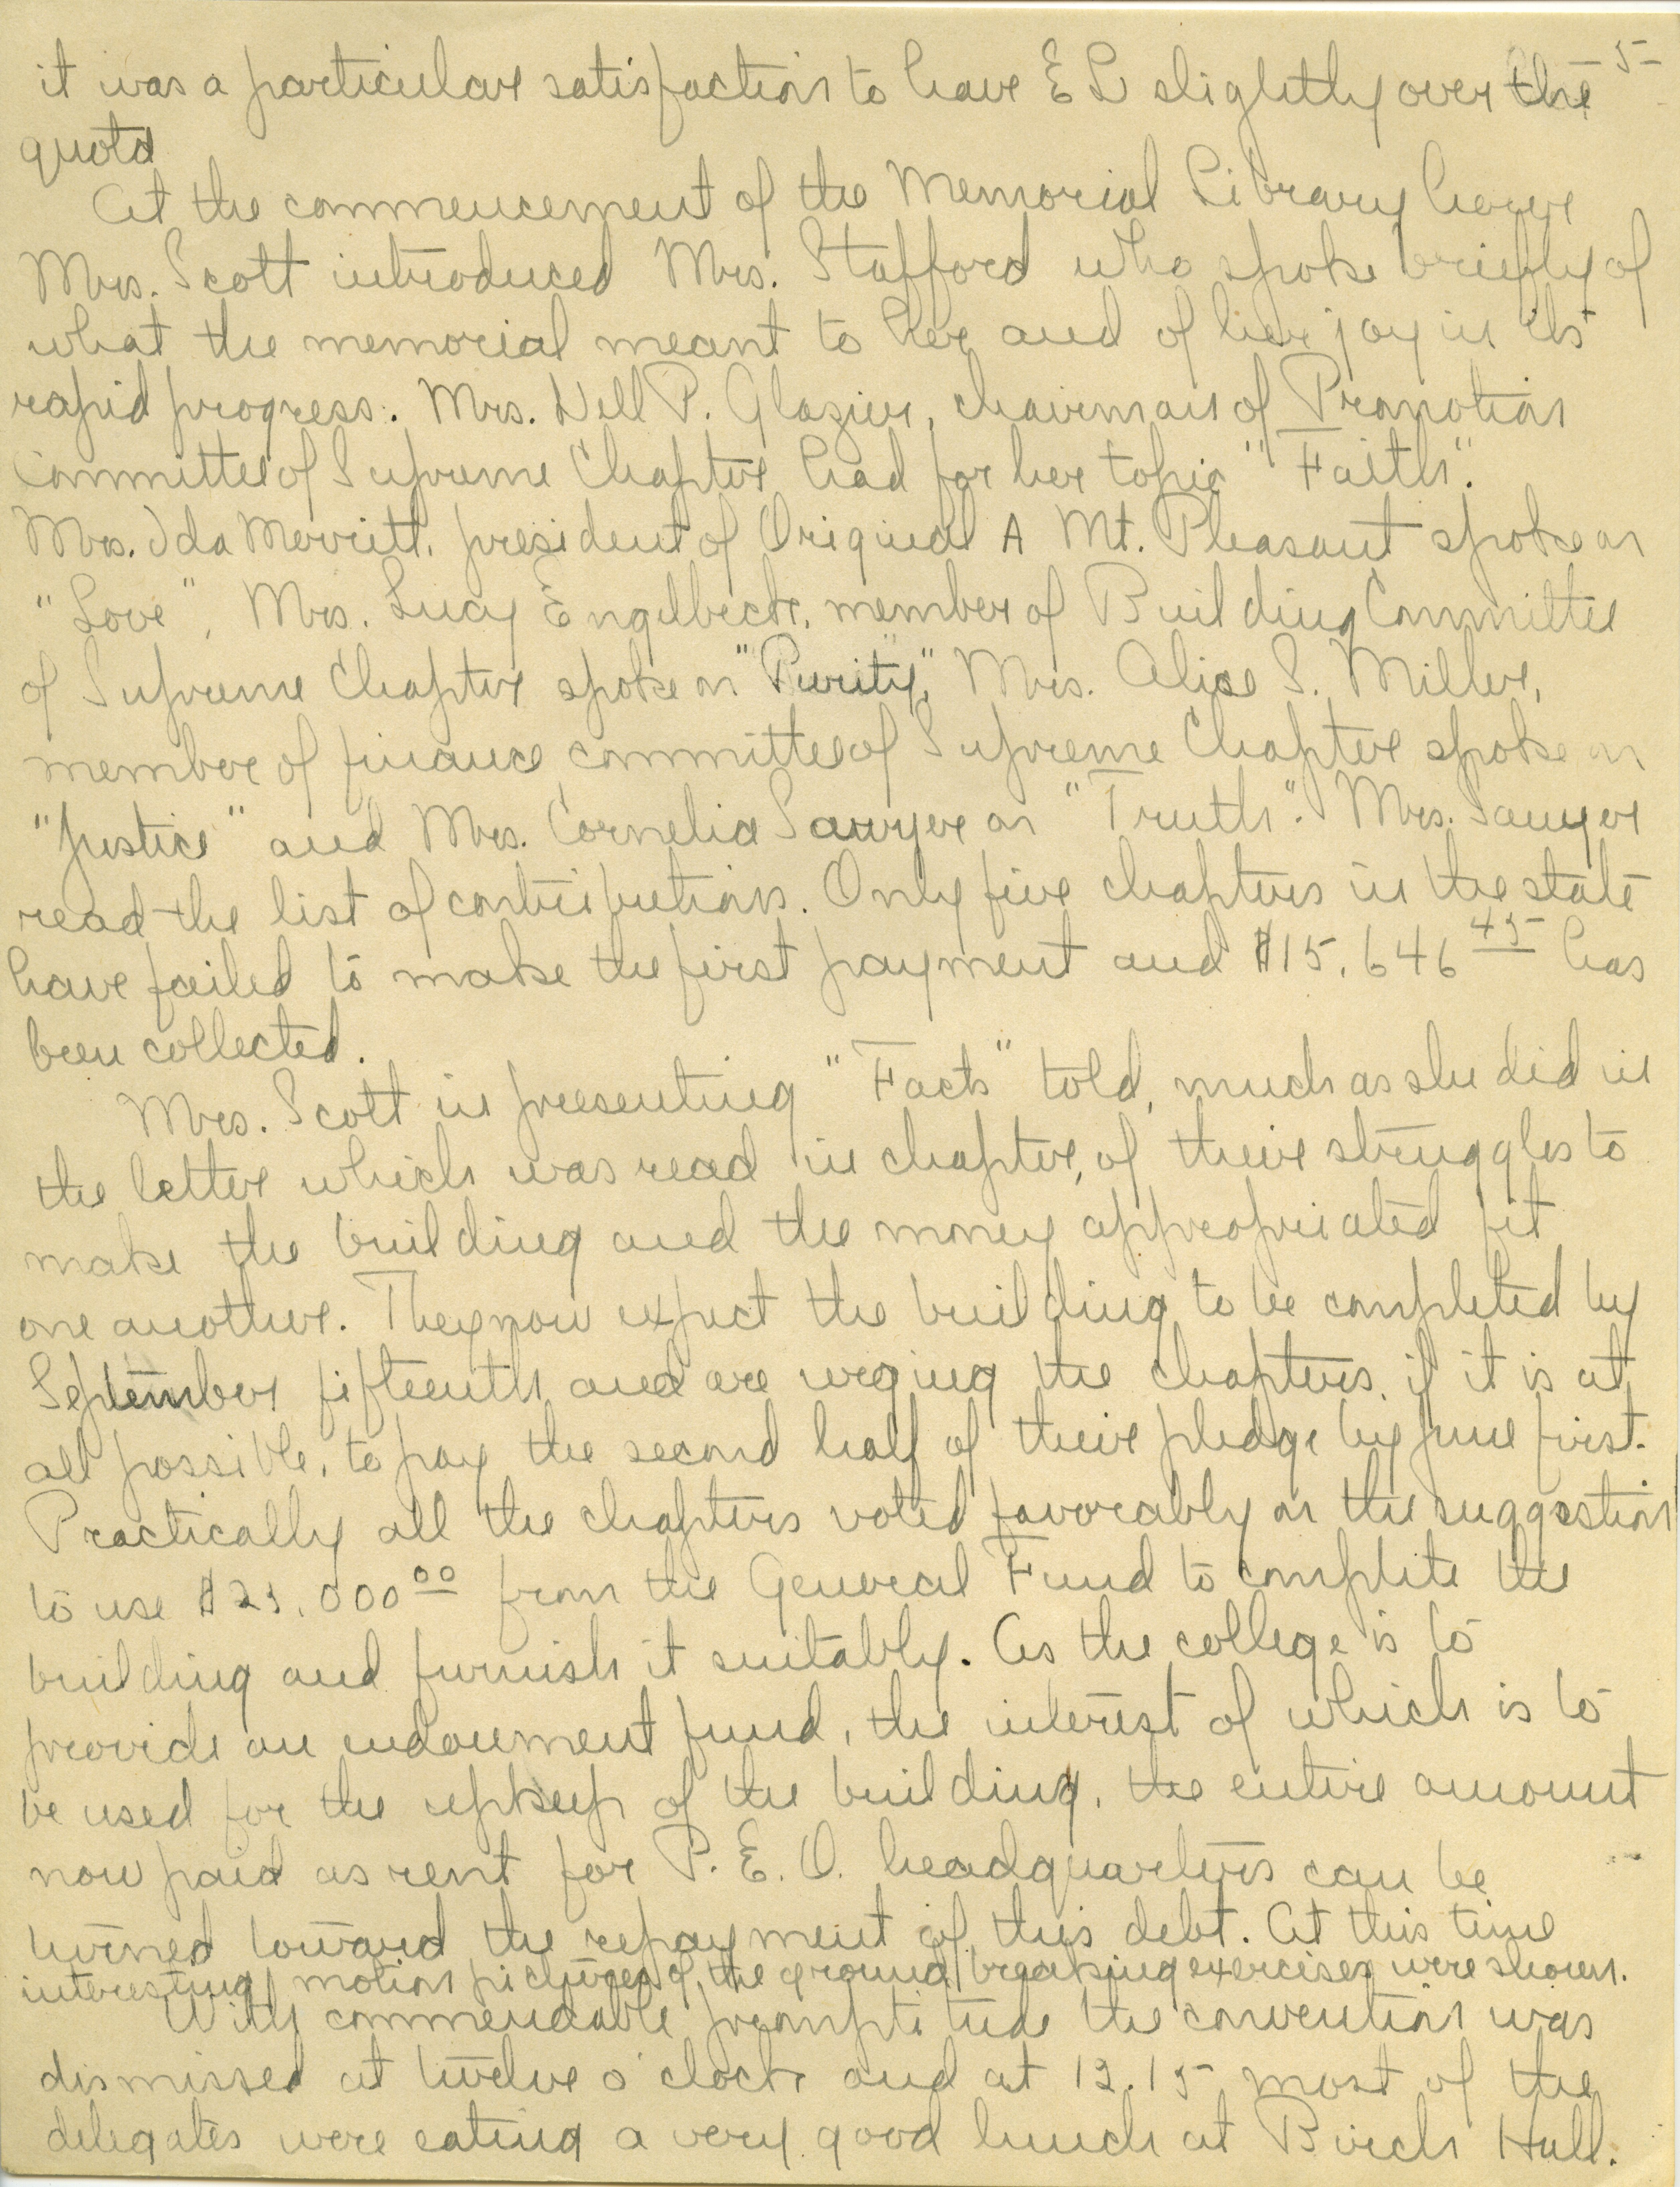 5
it was a particular satisfaction to have EL slightly over the
quota
At the commencement of the Memorial Library hour
Mrs. Scott introduced Mrs. Stafford who spoke briefly of
what the memorial meant to her and of her joy in its
rapid progress. Mrs. Nell P. Glazier, chairman of Promotion
Committee of Supreme Chapter had for her topic "Faith".
Mrs. Ida Merritt, president of Original A Mt. Pleasant spoke on
"Love", Mrs. Lucy Engelbeck, member of Building Committee
of Supreme Chapter spoke on "Purity," Mrs. Alice S. Miller,
member of finance committee of Supreme Chapter spoke on
"Justice" and Mrs. Cornelia Sawyer on "Truth". Mrs. Sawyer
read the list of contributions. Only five chapters in the state
have failed to make the first payment and $15,646 45 has
been collected.
Mrs. Scott in presenting "Facts" told, much as she did in
the letter which was read in chapter, of their struggles to
make the building and the money appropriated fit
one another. They now expect the building to be completed by
September fifteenth and are urging the chapters, if it is at
all possible, to pay the second half of their pledge by June first.
Practically all the chapters voted favorably on the suggestion
to use $25,000 00 from the General Fund to complete the
building and furnish it suitably. As the college is to
provide an endowment fund, the interest of which is to
be used for the upkeep of the building, the entire amount
now paid as rent for P. E. O. headquarters can be
turned toward the repayment of this debt. At this time
interesting motion pictures of the ground breaking exercises were shown.
With commendable promptitude the convention was
dismissed at twelve o'clock and at 12.15 most of the
delegates were eating a very good lunch at Birch Hall.